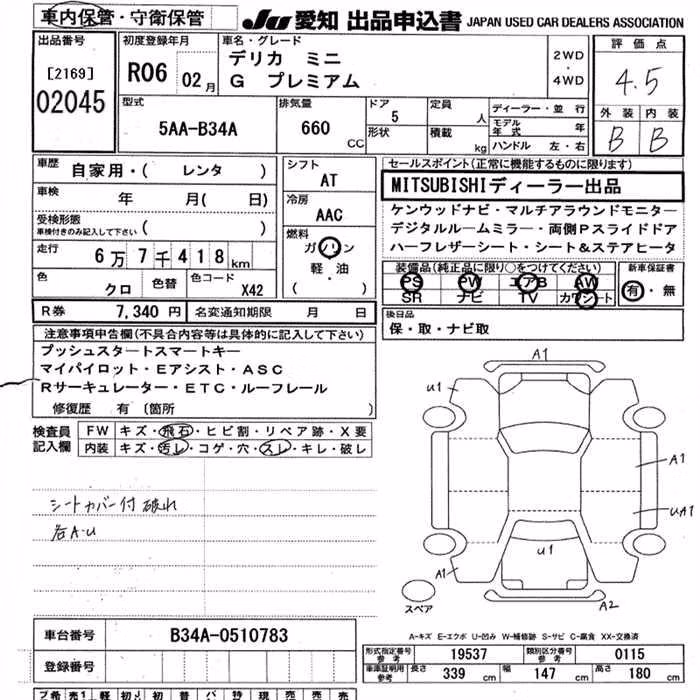 車内保管・守衛保管
JU 愛知 出品申込書 JAPAN USED CAR DEALERS ASSOCIATION
出品番号
[2169]
02045
初度登録年月
R06 02月
車名・グレード
デリカ ミニ
G プレミアム
2WD
・
4WD
評価点
4.5
外装 内装
B B
型式
5AA-B34A
排気量
660 CC
ドア
5
形状
定員
人
積載
kg
ディーラー・並行
モデル年式 年
ハンドル 左・右
車歴 自家用・( レンタ )
車検 年 月( 日)
受検形態
車検付きのみ記入して下さい ( )
走行 6万7千418km
色 クロ 色替 色コード X42
シフト
AT
冷房
AAC
燃料
ガソリン
軽・油
( )
セールスポイント(正常に機能するものに限ります)
MITSUBISHIディーラー出品
ケンウッドナビ・マルチアラウンドモニター
デジタルルームミラー・両側Pスライドドア
ハーフレザーシート・シート&ステアヒータ
装備品(純正品に限り○をつけてください)
PS PW エアB AW
SR ナビ TV カワシート
新車保証書
有・無
R券 7,340円 名変通知期限 月 日
後日品
保・取・ナビ取
注意事項申告欄(不具合内容等は具体的に記入して下さい)
プッシュスタートスマートキー
マイパイロット・Eアシスト・ASC
Rサーキュレーター・ETC・ルーフレール
修復歴 有 〔箇所 〕
検査員記入欄
FW キズ・飛石・ヒビ割・リペア跡・X要
内装 キズ・汚レ・コゲ・穴・スレ・キレ・破レ
シートカバー付 破れ
各A・U
A1
U1
A1
UA1
U1
A1
A2
スペア
A-キズ E-エクボ U-凹み W-補修跡 S-サビ C-腐食 XX-交換済
車台番号 B34A-0510783
登録番号
形式指定番号参考 19537 類別区分番号参考 0115
車庫証明用参考 長さ 339 cm 幅 147 cm 高さ 180 cm